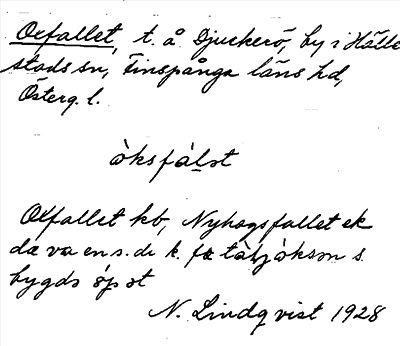 Oxfallet, t. å Djuckerö, by i Hälle-
stads sn, Finspånga läns hd,
Österg. l.
òksfál̠ət
Oxfallet kb, Nyhagsfallet ek
də va en s. də k. fə
bygdə əp ət
N. Lindqvist 1928